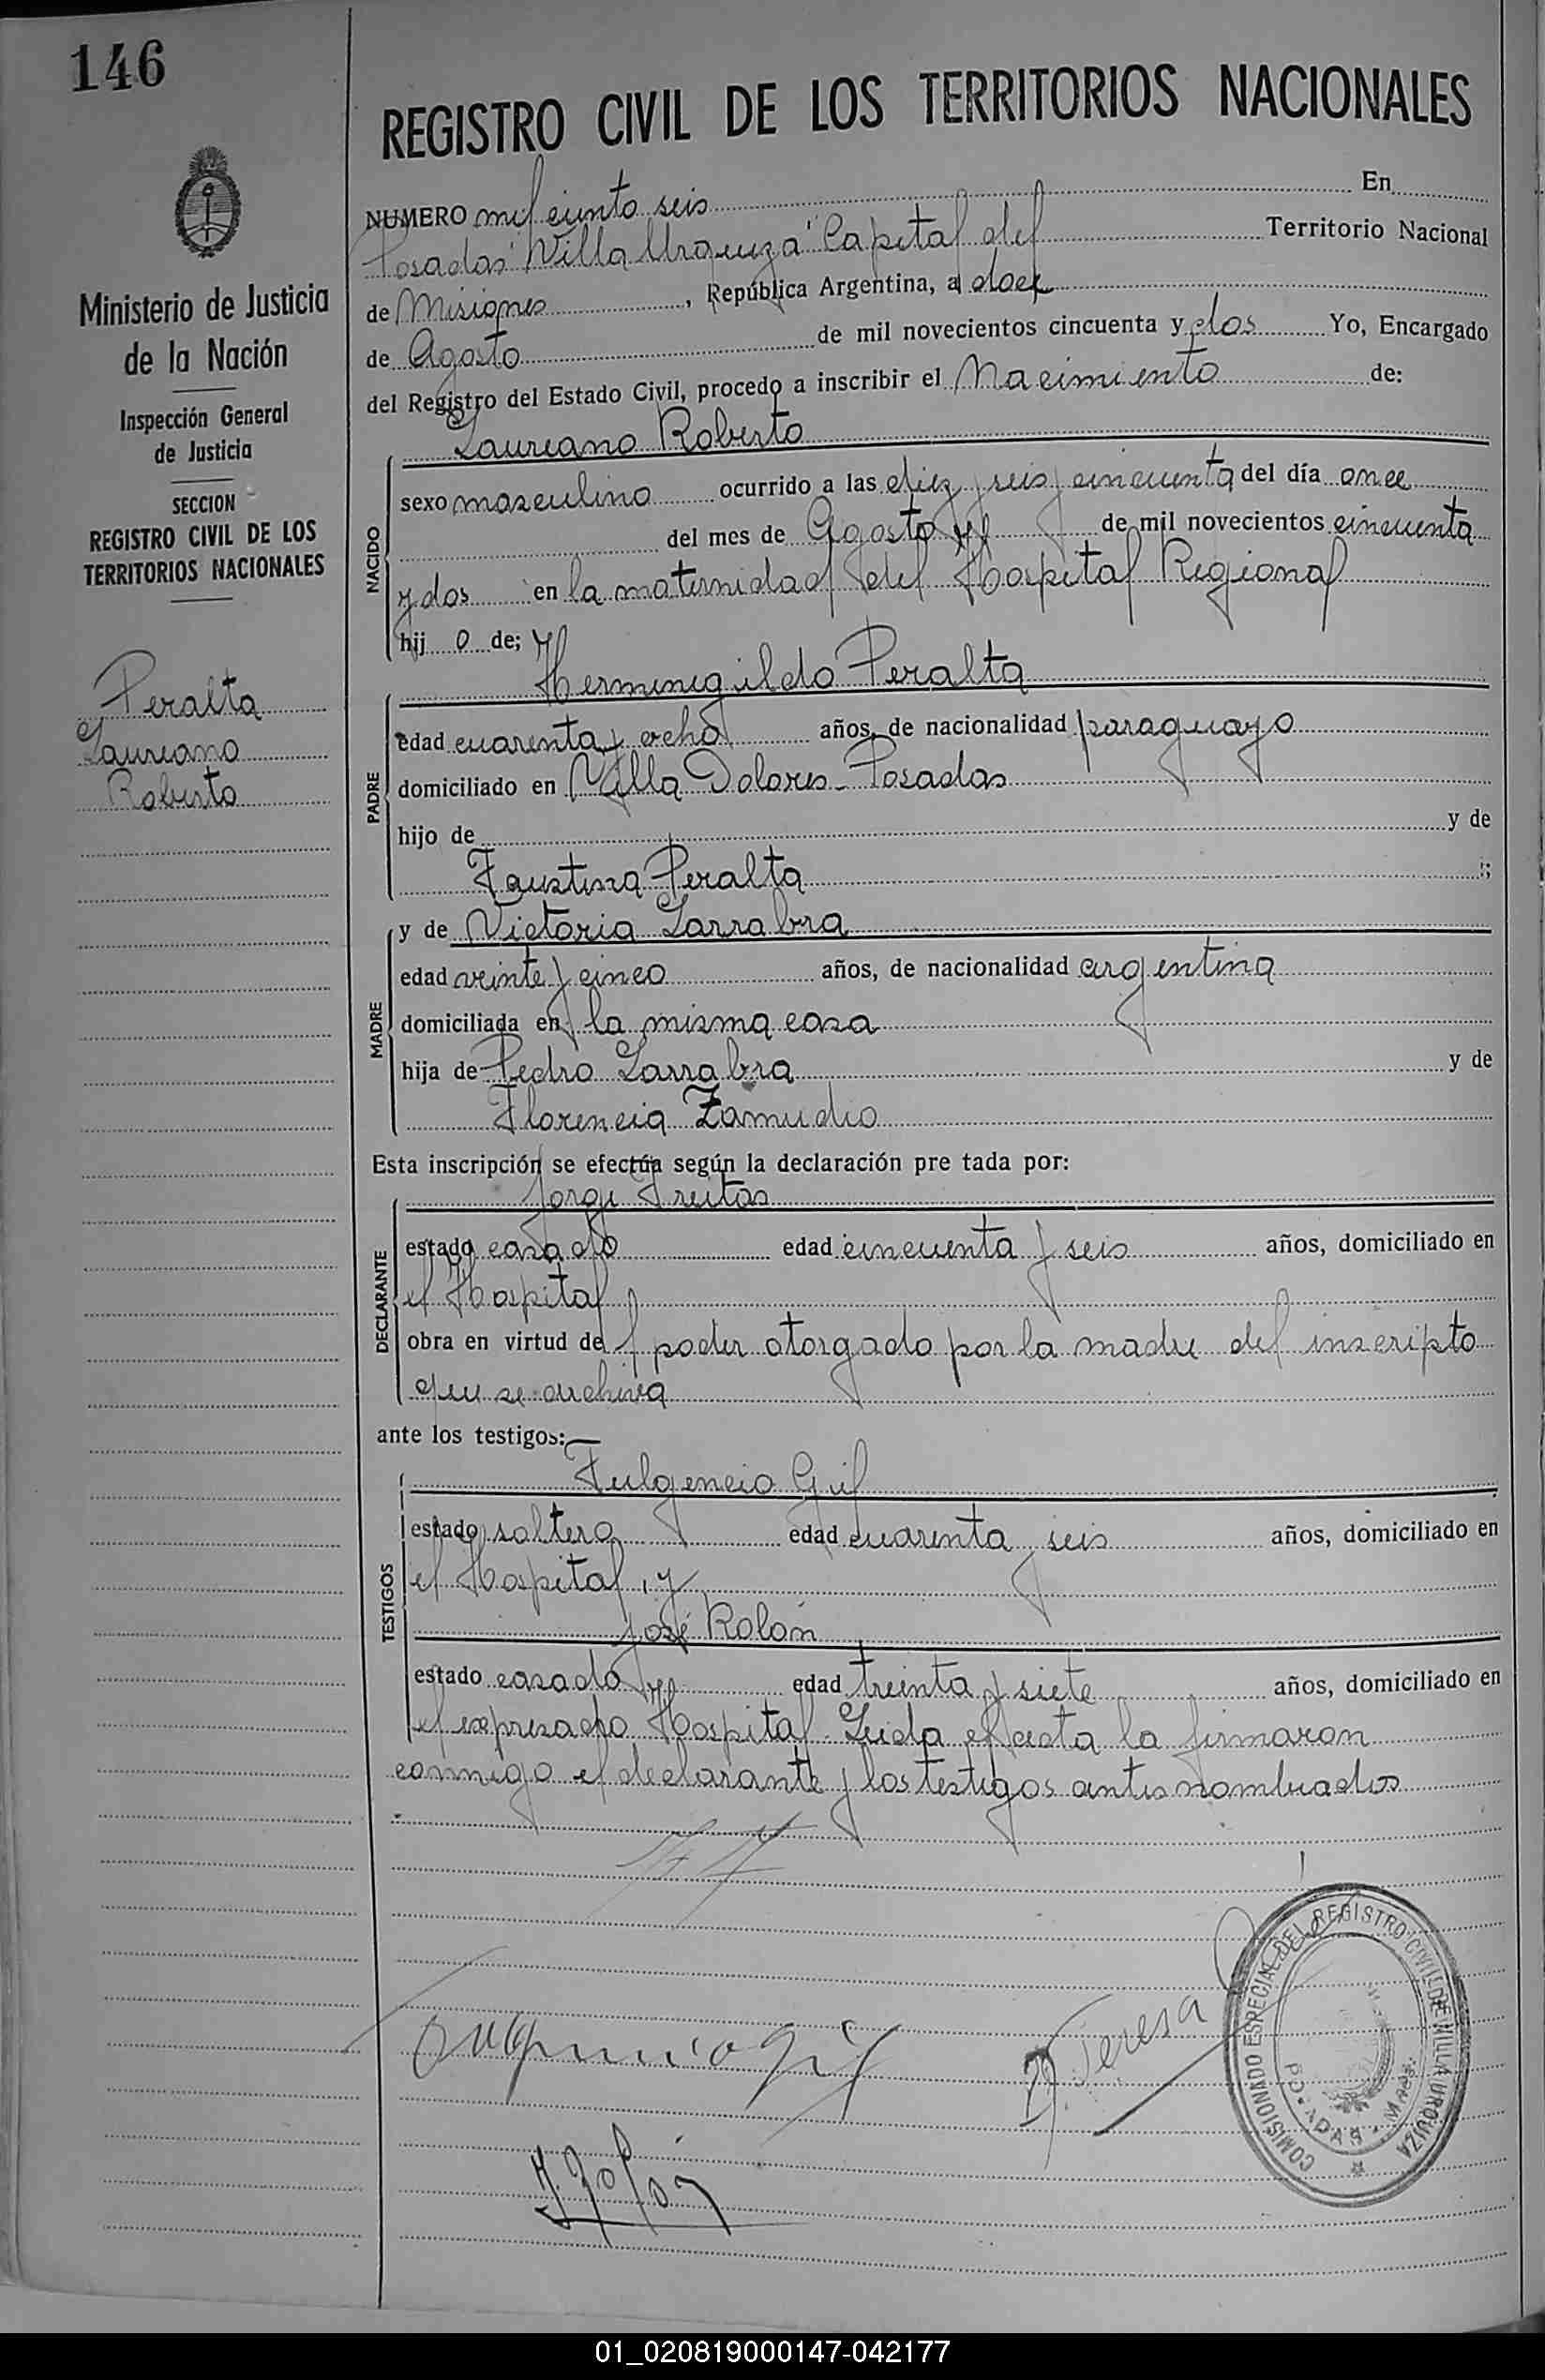 146
REGISTRO CIVIL DE LOS TERRITORIOS NACIONALES
Ministerio de Justicia
de la Nación
Inspección General
de Justicia
SECCION
REGISTRO CIVIL DE LOS
TERRITORIOS NACIONALES
Peralta
Laureano
Roberto
NUMERO mil ciento seis En
Posadas "Villa Urquiza" Capital del Territorio Nacional
de Misiones, República Argentina, a doce
de Agosto de mil novecientos cincuenta y dos Yo, Encargado
del Registro del Estado Civil, procedo a inscribir el Nacimiento de:
Laureano Roberto
NACIDO
sexo masculino ocurrido a las diez y seis y cincuenta del día once
del mes de Agosto de mil novecientos cincuenta
y dos en la maternidad del Hospital Regional
hij o de;
PADRE
Hermenegildo Peralta
edad cuarenta y ocho años, de nacionalidad paraguayo
domiciliado en Villa Dolores - Posadas
hijo de y de
Faustina Peralta ;
MADRE
y de Victoria Larrabra
edad veinte y cinco años, de nacionalidad argentina
domiciliada en la misma casa
hija de Pedro Larrabra y de
Florencia Zamudio
Esta inscripción se efectúa según la declaración pre tada por:
DECLARANTE
Jorge Freitas
estado casado edad cincuenta y seis años, domiciliado en
el Hospital
obra en virtud de poder otorgado por la madre del inscripto
que se archiva
ante los testigos:
TESTIGOS
Fulgencio Gil
estado soltero edad cuarenta y seis años, domiciliado en
el Hospital, y
José Rolón
estado casado edad treinta y siete años, domiciliado en
el expresado Hospital. Leida el acta la firmaron
conmigo el declarante y los testigos antes nombrados
Teresa
COMISIONADO ESPECIAL DEL REGISTRO CIVIL DE VILLA URQUIZA
POSADAS - Mnes.
J. Rolón
01_020819000147-042177